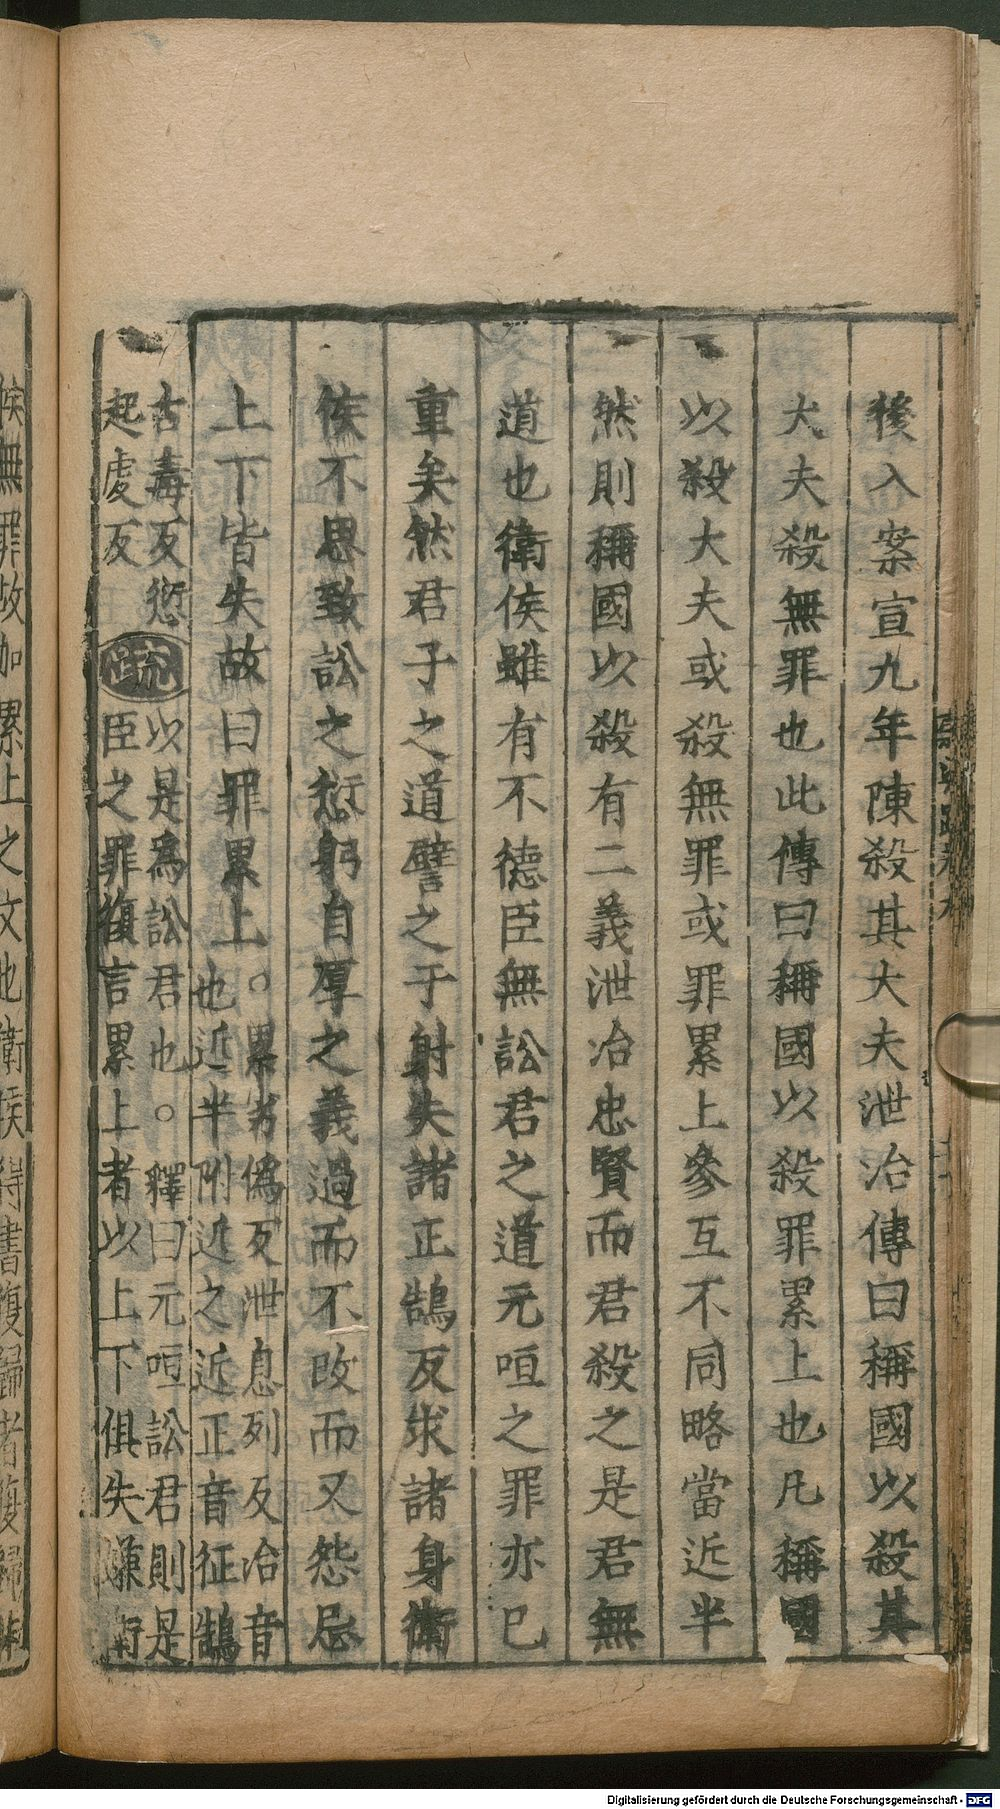 後入案宣九年陳殺其大夫泄冶傳曰稱國以殺其
大夫殺無罪也此傳曰稱國以殺罪累上也凡稱國
以殺大夫或殺無罪或罪累上參互不同略當近半
然則稱國以殺有二義泄冶忠賢而君殺之是君無
道也衛侯雖有不德臣無訟君之道元咺之罪亦已
重矣然君子之道譬之于射失諸正鵠反求諸身衛
侯不思致訟之愆躬自厚之義過而不改而又怨忌
上下皆失故曰罪累上。累劣僞反泄息列反冶音
也近半附近之近正音征鵠
古毒反愆
起虔反
疏
以是爲訟君也。釋曰元咺訟君則是
臣之罪復言累上者以上下俱失嫌衛
侯無罪故加累上之文也衛侯得書復歸者復歸
Digitalisierung gefördert durch die Deutsche Forschungsgemeinschaft - DFG